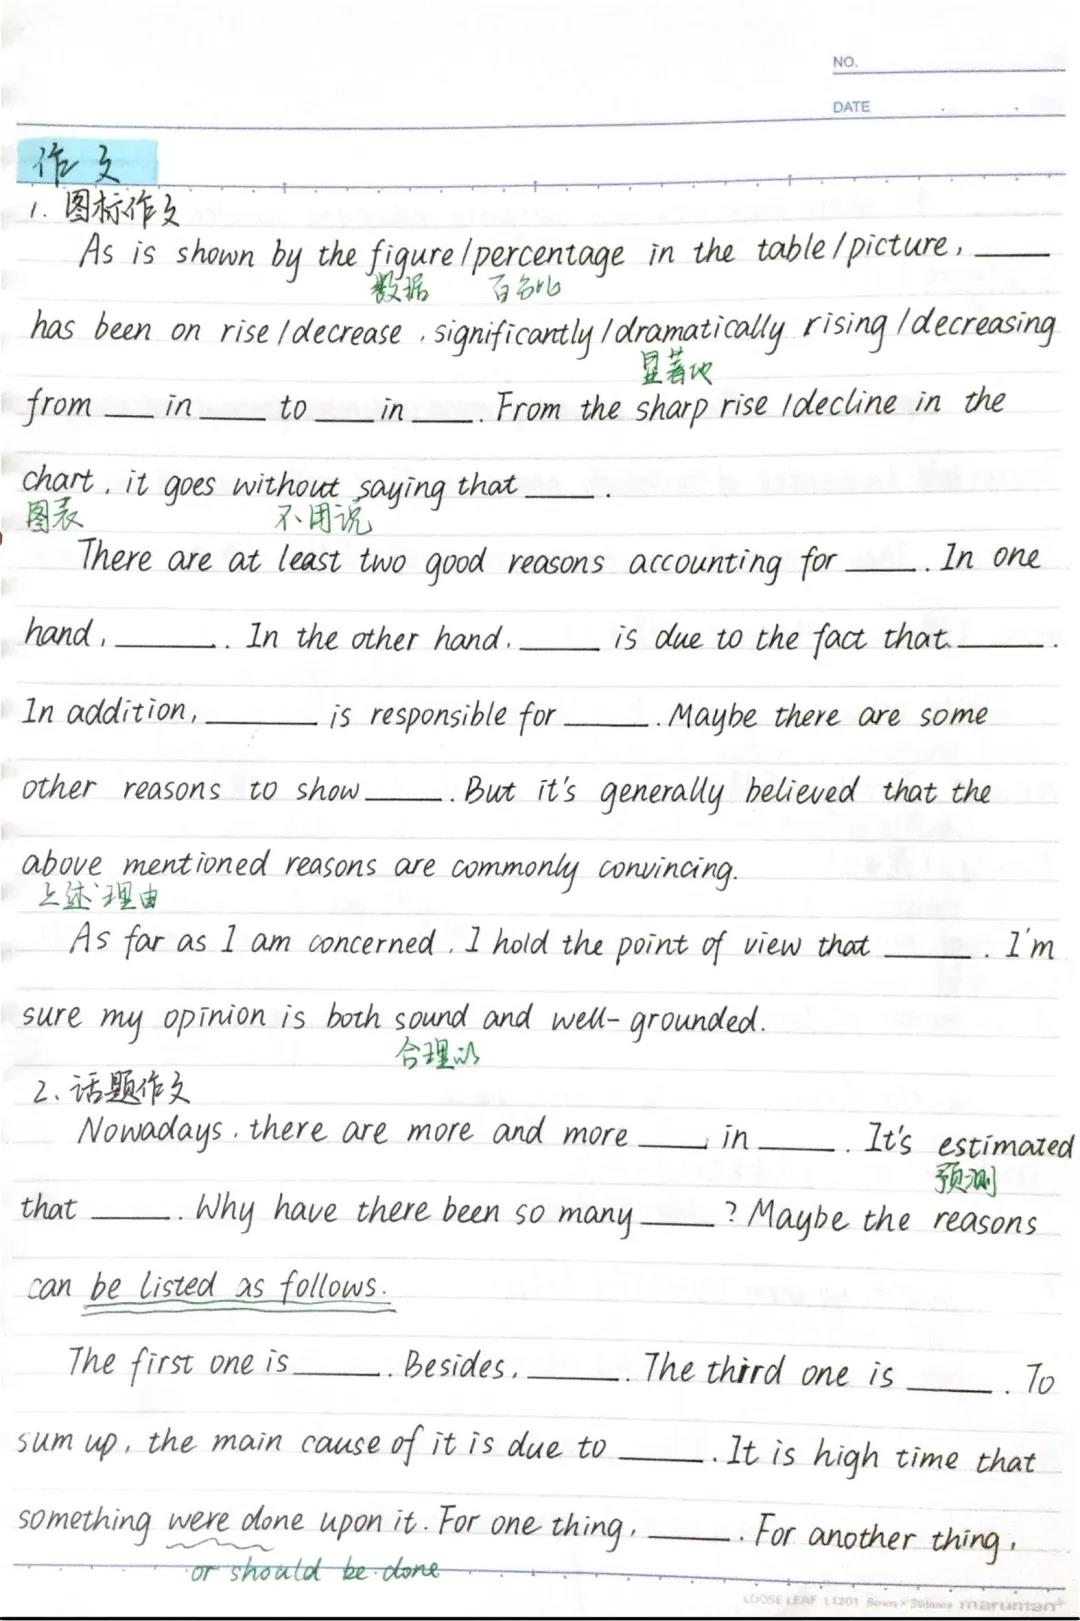 NO.
DATE
作文
1. 图标作文
As is shown by the figure/percentage in the table/picture, ____
数据 百分比
has been on rise/decrease, significantly/dramatically rising/decreasing
显著地
from ____ in ____ to ____ in ____. From the sharp rise/decline in the
chart, it goes without saying that ____.
图表 不用说
There are at least two good reasons accounting for ____. In one
hand, ____. In the other hand, ____ is due to the fact that ____.
In addition, ____ is responsible for ____. Maybe there are some
other reasons to show ____. But it's generally believed that the
above mentioned reasons are commonly convincing.
上述理由
As far as I am concerned, I hold the point of view that ____. I'm
sure my opinion is both sound and well-grounded.
合理的
2. 话题作文
Nowadays, there are more and more ____ in ____. It's estimated
预测
that ____. Why have there been so many ____? Maybe the reasons
can be listed as follows.
The first one is ____. Besides, ____. The third one is ____. To
sum up, the main cause of it is due to ____. It is high time that
something were done upon it. For one thing, ____. For another thing,
or should be done
LOOSE LEAF L1201 maruman